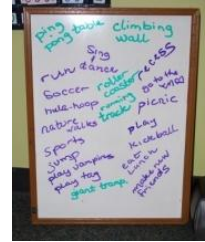 ping
pong table
climbing
wall
sing
run
dance
recess
soccer
roller
coaster
go to the
hula-hoop
running
track
picnic
nature
walks
play
sports
kickball
jump
play vampires
eat
lunch
play tag
make new
friends
giant tramp.